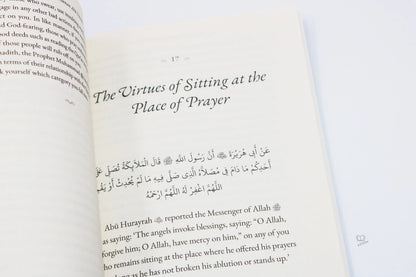 gage in any other bad acti
ct on you. In like manner, if
nd God-fearing, those who
ood deeds such as reading
of those people will rub off
hadith, the Prophet
n terms of their relationship
k yourself which category you
17
The Virtues of Sitting at the
Place of Prayer
عَنْ أَبِي هُرَيْرَةَ ﷺ أَنَّ رَسُولَ اللَّهِ ﷺ قَالَ الْمَلَائِكَةُ تُصَلِّي عَلَى
أَحَدِكُمْ مَا دَامَ فِي مُصَلَّاهُ الَّذِي صَلَّى فِيهِ مَا لَمْ يُحْدِثْ أَوْ يَقُمْ
اللَّهُمَّ اغْفِرْ لَهُ اللَّهُمَّ ارْحَمْهُ
Abū Hurayrah reported the Messenger of Allah ﷺ
as saying: ‘The angels invoke blessings, saying: “O Allah,
forgive him; O Allah, have mercy on him,” on any of you
who remains sitting at the place where he offered his prayers
as long as he has not broken his ablution or stands up.’